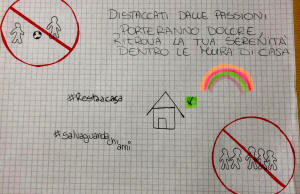 DISTACCATI DALLE PASSIONI
PORTERANNO DOLORE,
RITROVA LA TUA SERENITÀ
DENTRO LE MURA DI CASA
#Restaacasa
#salvaguardachiami